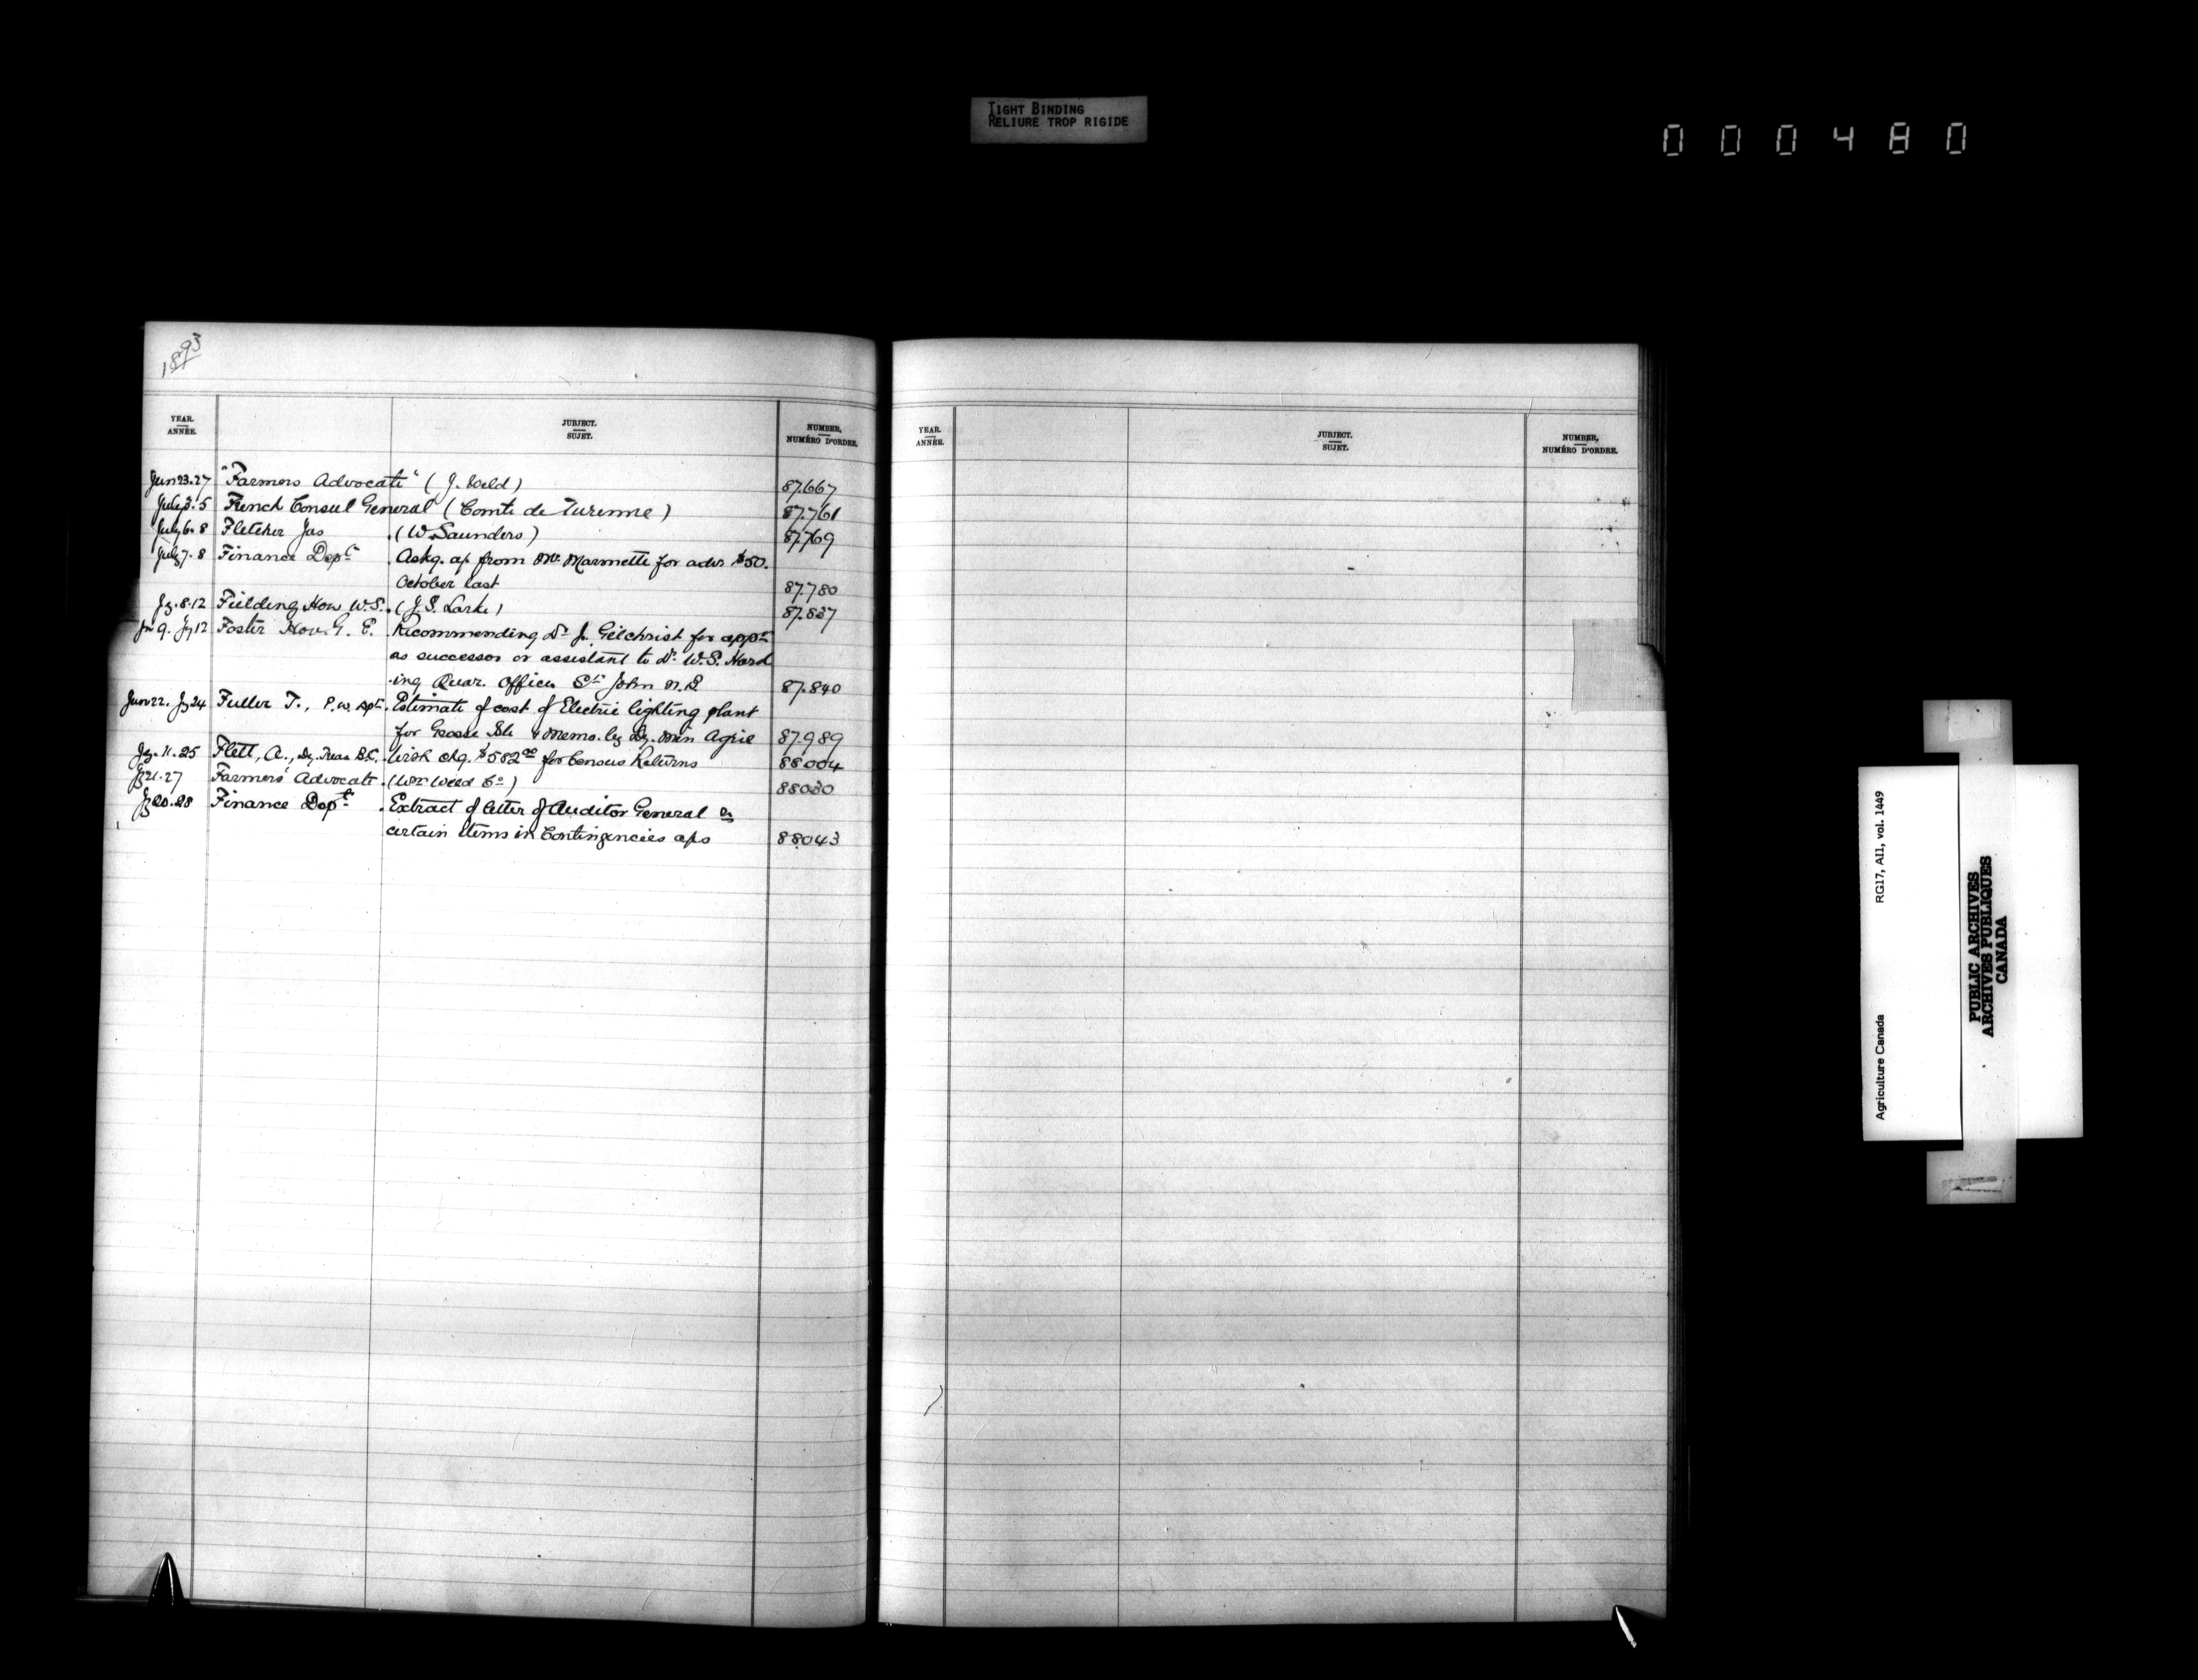 TIGHT BINDING
RELIURE TROP RIGIDE
000480
1893
YEAR. ANNÉE. JUBJECT. SUJET. NUMBER, NUMÉRO D'ORDRE.
Jun 23.27 "Farmers Advocate" (J. Weld) 87.667
July 3.5 French Consul General (Comte de Turenne) 87.761
July 6.8 Fletcher Jas (W. Saunders) 87.769
July 7.8 Finance Dept Askg. a/c from Mr Marmette for adv $50.
October last 87.780
Jy. 8.12 Fielding Hon W.S. (J.S. Larke) 87.837
9. Jy 12 Foster Hon. G. E. Recommending Dr J. Gilchrist for appt
as successor or assistant to Dr W.S. Hard
ing Quar. Officer St John N.B 87.840
Jun 22. Jy 24 Fuller T., P.W. Dpt. Estimate of cost of Electric lighting plant
for Grosse Isle & memo. by Dy. Min Agric 87.989
Jy. 11.25 Flett, A., Dy. Treas B.C. Wish chq. $582.00 for Census Returns 88004
Jy 21.27 Farmers' Advocate (Wm Weld Co) 88030
Jy 20.28 Finance Dept Extract of letter of Auditor General re
certain items in Contingencies a/cs 88043
YEAR. ANNÉE. JUBJECT. SUJET. NUMBER, NUMÉRO D'ORDRE.
Agriculture Canada RG17, AII, vol. 1449
PUBLIC ARCHIVES
ARCHIVES PUBLIQUES
CANADA